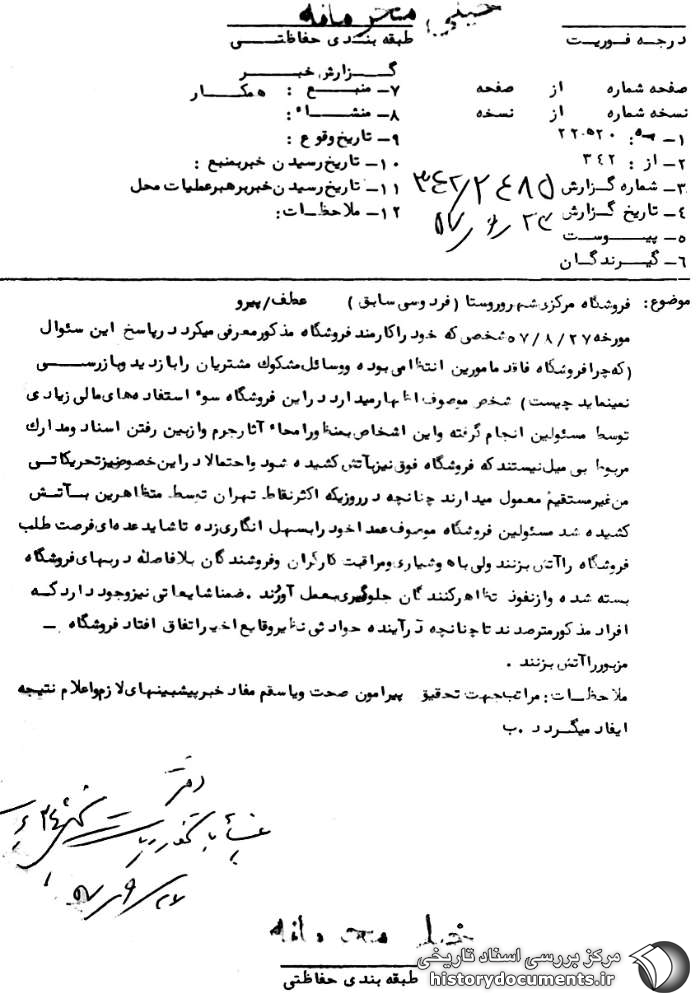 خیلی محرمانه
درجه فوریت
طبقه بندی حفاظتی
گزارش خبر
صفحه شماره از صفحه
نسخه شماره از نسخه
۱- به: ۲۲۰۵۲۰
۲- از: ۳۴۲
۳- شماره گزارش
۴- تاریخ گزارش
۵- پیوست
۶- گیرندگان
۷- منبع: همکار
۸- منشاء:
۹- تاریخ وقوع:
۱۰- تاریخ رسیدن خبر بمنبع:
۱۱- تاریخ رسیدن خبر برهبر عملیات محل
۱۲- ملاحظات:
موضوع: فروشگاه مرکزی شهر و روستا (فردوسی سابق) عطف/پیرو
مورخه ۵۷/۸/۲۷ شخصی که خود را کارمند فروشگاه مذکور معرفی میکرد در پاسخ این سئوال
(که چرا فروشگاه فاقد مامورین انتظامی بوده و وسائل مشکوک مشتریان را بازدید و بازرسی
نمینماید چیست) شخص موصوف اظهار میدارد در این فروشگاه سوء استفاده های مالی زیادی
توسط مسئولین انجام گرفته و این اشخاص بمنظور امحاء آثار جرم و از بین رفتن اسناد و مدارک
مربوط بی میل نیستند که فروشگاه فوق نیز بآتش کشیده شود و احتمالا در این خصوص نیز تحریکاتی
من غیر مستقیم معمول میدارند چنانچه در روزیکه اکثر نقاط تهران توسط متظاهرین بآتش
کشیده شد مسئولین فروشگاه موصوف عمدا خود را بسهل انگاری زده تا شاید عده ای فرصت طلب
فروشگاه را آتش بزنند ولی با هوشیاری و مراقبت کارگران و فروشندگان بلافاصله دربهای فروشگاه
بسته شده و از نفوذ تظاهرکنندگان جلوگیری بعمل آورند. ضمنا شایعاتی نیز وجود دارد که
افراد مذکور مترصدند تا چنانچه در آینده حوادثی نظیر وقایع اخیر اتفاق افتاد فروشگاه -
مزبور را آتش بزنند.
ملاحظات: مراتب جهت تحقیق پیرامون صحت و یا سقم مفاد خبر پیشبینهای لازم و اعلام نتیجه
ایفاد میگردد. ب
دفتر
خیلی محرمانه
طبقه بندی حفاظتی
مرکز بررسی اسناد تاریخی
historydocuments.ir